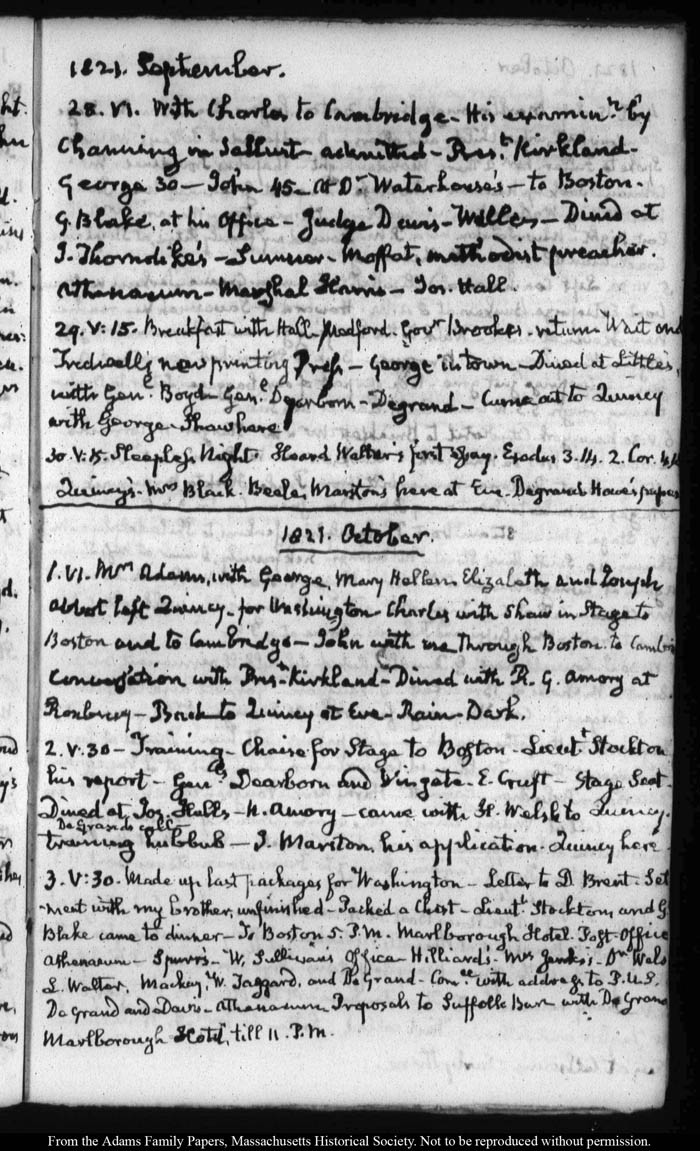 1821. September.
28. VI. With Charles to Cambridge - His examinn. by
Channing in Sallust - admitted - Prest. Kirkland -
George 30 - John 45 - at Dr. Waterhouse's - to Boston.
G. Blake, at his Office - Judge Davis - Willes - Dined at
I. Thorndike's - Sumner - Moffat, methodist preacher.
Athenaeum - Marshal Harris - Jos. Hall.
29. V:15. Breakfast with Hall, Medford. Govr. Brooks. return Wait and
Treadwell's new printing Press - George in town - Dined at Little's,
with Genl. Boyd - Genl. Dearborn - Degrand - Came out to Quincy
with George - Shaw here
30. V:15. Sleepless Night. Heard Walter's first Essay. Exodus 3.14. 2. Cor.
Quincy's. Mrs Black. Beale, Marston's here at Eve. Degrand's Howe's papers
1821. October.
1. VI. Mrs Adams, with George, Mary Hellen, Elizabeth and Joseph
Abbot left Quincy - for Washington - Charles with Shaw in Stage to
Boston and to Cambridge - John with me through Boston to
Conversation with Prest. Kirkland - Dined with R. G. Amory at
Roxbury - Back to Quincy at Eve - Rain - Dark.
2. V:30 - Training - Chaise for Stage to Boston - Lieutt. Stockton
his report - Genls. Dearborn and Wingate. E. Cruft - Stage Seat.
Dined at Jos. Hall's - N. Amory - came with H. Welsh to Quincy.
DeGrand's call
training hubbub - J. Marston, his application. Quincy here
3. V:30. Made up last packages for Washington - Letter to D Brent. Set
-ment with my brother, unfinished - Packed a Chest - Lieutt. Stockton, and G.
Blake came to dinner - To Boston 5. P.M. Marlborough Hotel. Post-Office
Athenaeum - W. Sullivan's Office Hilliard's. Mrs
L. Walter, Mackay, W. Taggard, and DeGrand - Comee. with address to P.U.S.
DeGrand and Davis - Athenaeum Proposals to Suffolk Bar with
Marlborough Hotel, till 11. P.M.
From the Adams Family Papers, Massachusetts Historical Society. Not to be reproduced without permission.